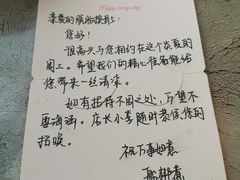 Happy every day
亲爱的
您好！
很高兴与您相约在这个炎夏的
周三。希望我们的精心准备能给
您带来一丝清凉。
如有招待不周之处，万望不
要海涵。店长小李随时恭候您的
招唤。
祝万事如意